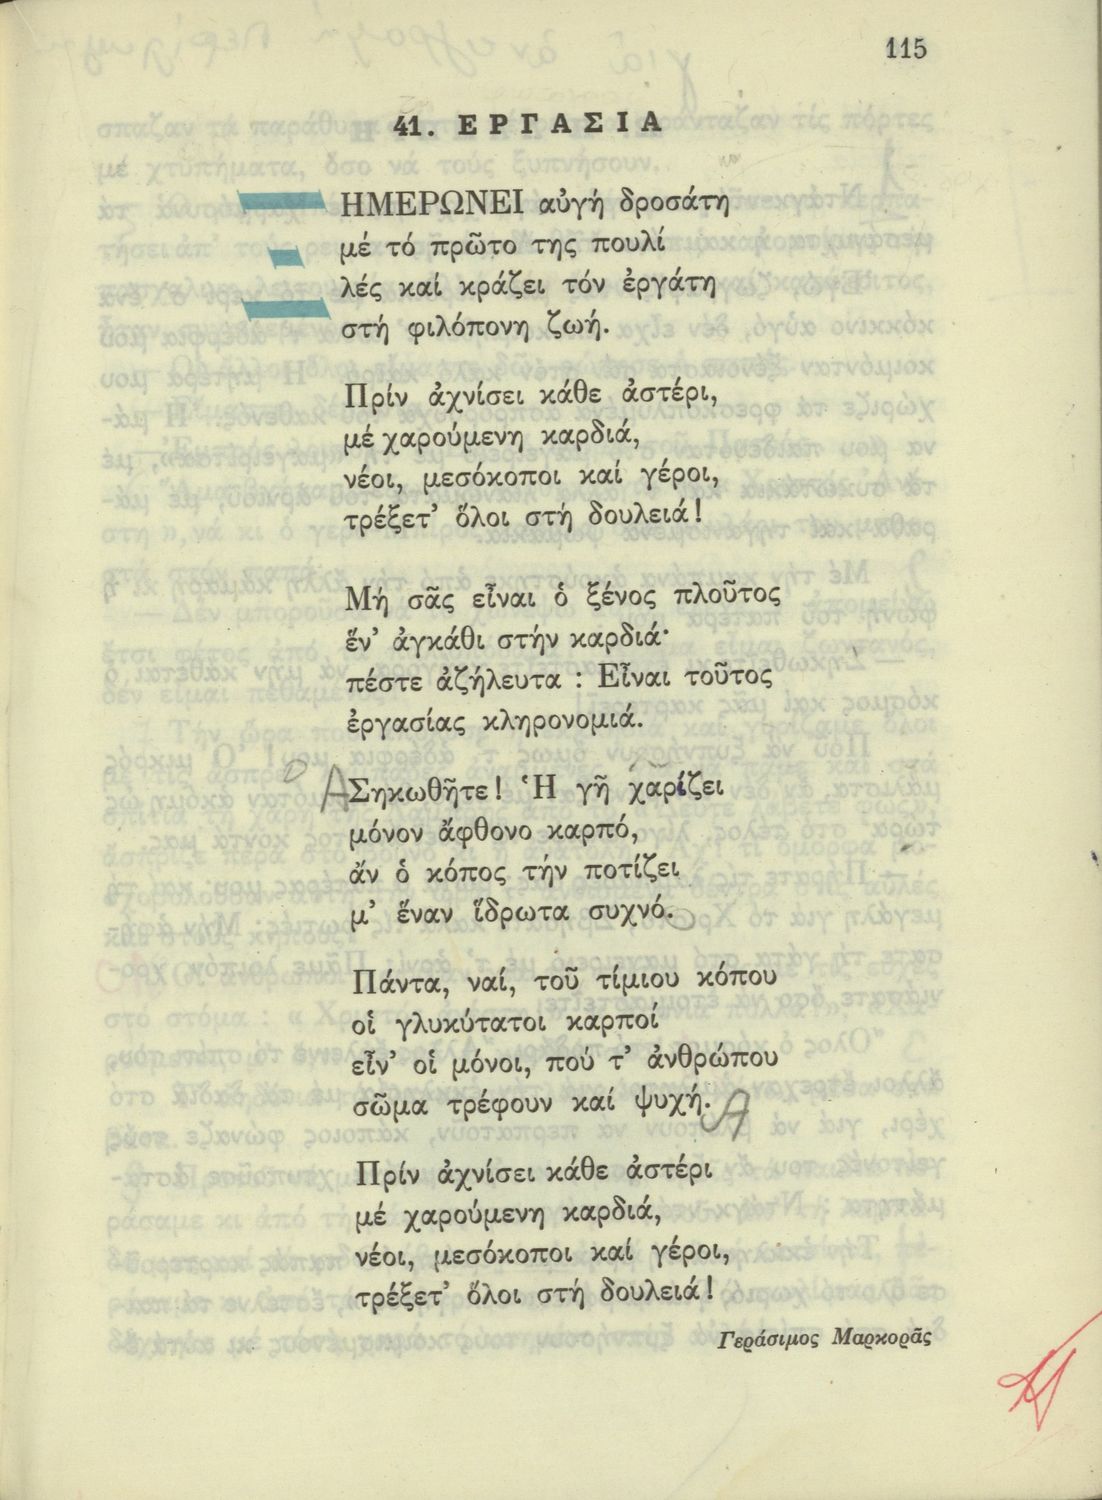 115
41. ΕΡΓΑΣΙΑ
ΗΜΕΡΩΝΕΙ αὐγή δροσάτη
μέ τό πρῶτο της πουλί
λές καί κράζει τόν ἐργάτη
στή φιλόπονη ζωή.
Πρίν ἀχνίσει κάθε ἀστέρι,
μέ χαρούμενη καρδιά,
νέοι, μεσόκοποι καί γέροι,
τρέξετ’ ὅλοι στή δουλειά!
Μή σᾶς εἶναι ὁ ξένος πλοῦτος
ἕν’ ἀγκάθι στήν καρδιά·
πέστε ἀζήλευτα : Εἶναι τοῦτος
ἐργασίας κληρονομιά.
Α Σηκωθῆτε! Ἡ γῆ χαρίζει
μόνον ἄφθονο καρπό,
ἄν ὁ κόπος τήν ποτίζει
μ’ ἕναν ἵδρωτα συχνό.
Πάντα, ναί, τοῦ τίμιου κόπου
οἱ γλυκύτατοι καρποί
εἶν’ οἱ μόνοι, πού τ’ ἀνθρώπου
σῶμα τρέφουν καί ψυχή. Α
Πρίν ἀχνίσει κάθε ἀστέρι
μέ χαρούμενη καρδιά,
νέοι, μεσόκοποι καί γέροι,
τρέξετ’ ὅλοι στή δουλειά!
Γεράσιμος Μαρκορᾶς